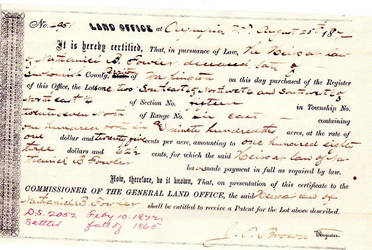 No. LAND OFFICE at Olympia August 25th 187
It is hereby certified, That, in pursuance of Law, the Heirs at law
of Nathaniel B. Fowler deceased late of
County, on this day purchased of the Register
of this Office, the Lots one, two Southeast of Northwest and Southwest of
Northeast 4 of Section No. fifteen in Township No.
North of Range No. six east containing
one hundred & hundredths acres, at the rate of
one dollar and twenty five cents per acre, amounting to one hundred eighty
three dollars and cents, for which the said Heirs at law of Na-
thaniel B. Fowler have made payment in full as required by law.
Now, therefore, be it known, That, on presentation of this certificate to the
COMMISSIONER OF THE GENERAL LAND OFFICE, the said Heirs at law of
Nathaniel B. Fowler
shall be entitled to receive a Patent for the Lot above described.
D.S. 2052 Feby 10. 1872
Settled fall of 1865
Brown Register.